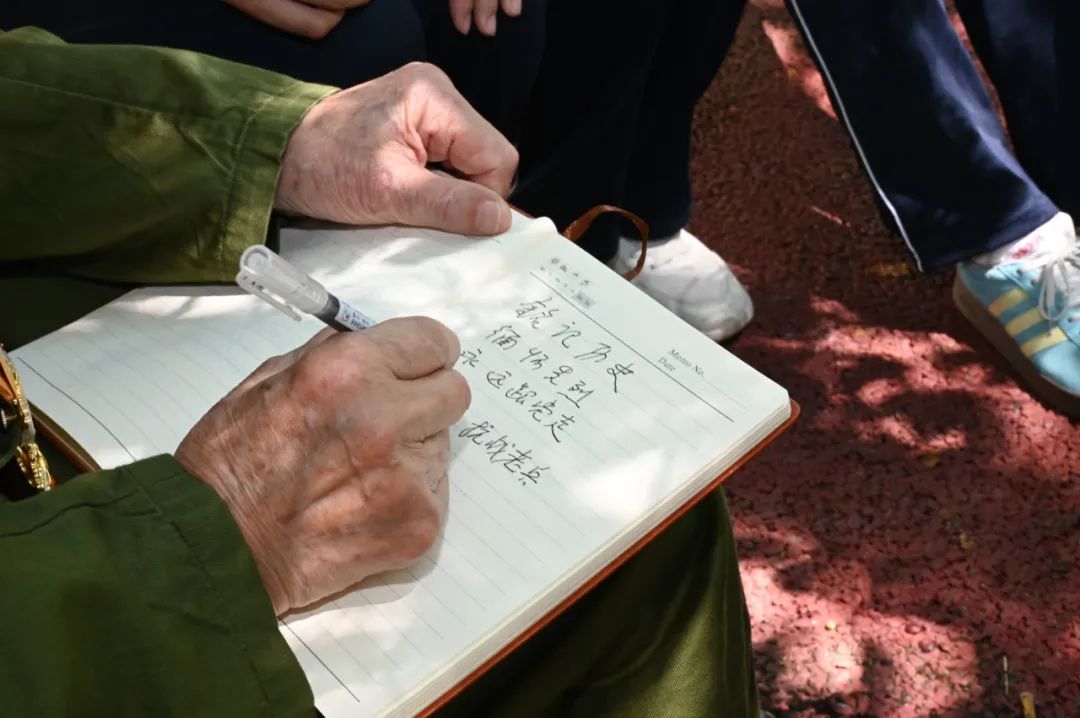 Memo No.
Date
铭记历史
缅怀先烈
永远跟党走
抗战老兵